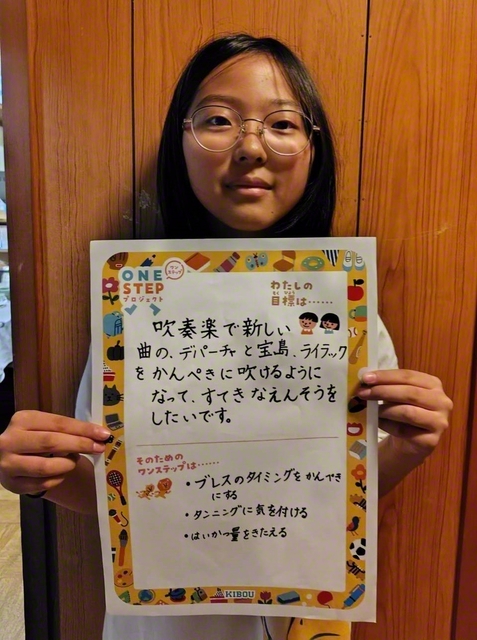 ONE
STEP
プロジェクト
ワン
ステップ
わたしの
もくひょう
目標は……
吹奏楽で新しい
曲の、デパーチャと宝島、ライラック
をかんぺきに吹けるように
なって、すてきなえんそうを
したいです。
そのための
ワンステップは……
・ブレスのタイミングをかんぺき
にする
・タンニングに気を付ける
・はいかつ量をきたえる
KIBOU